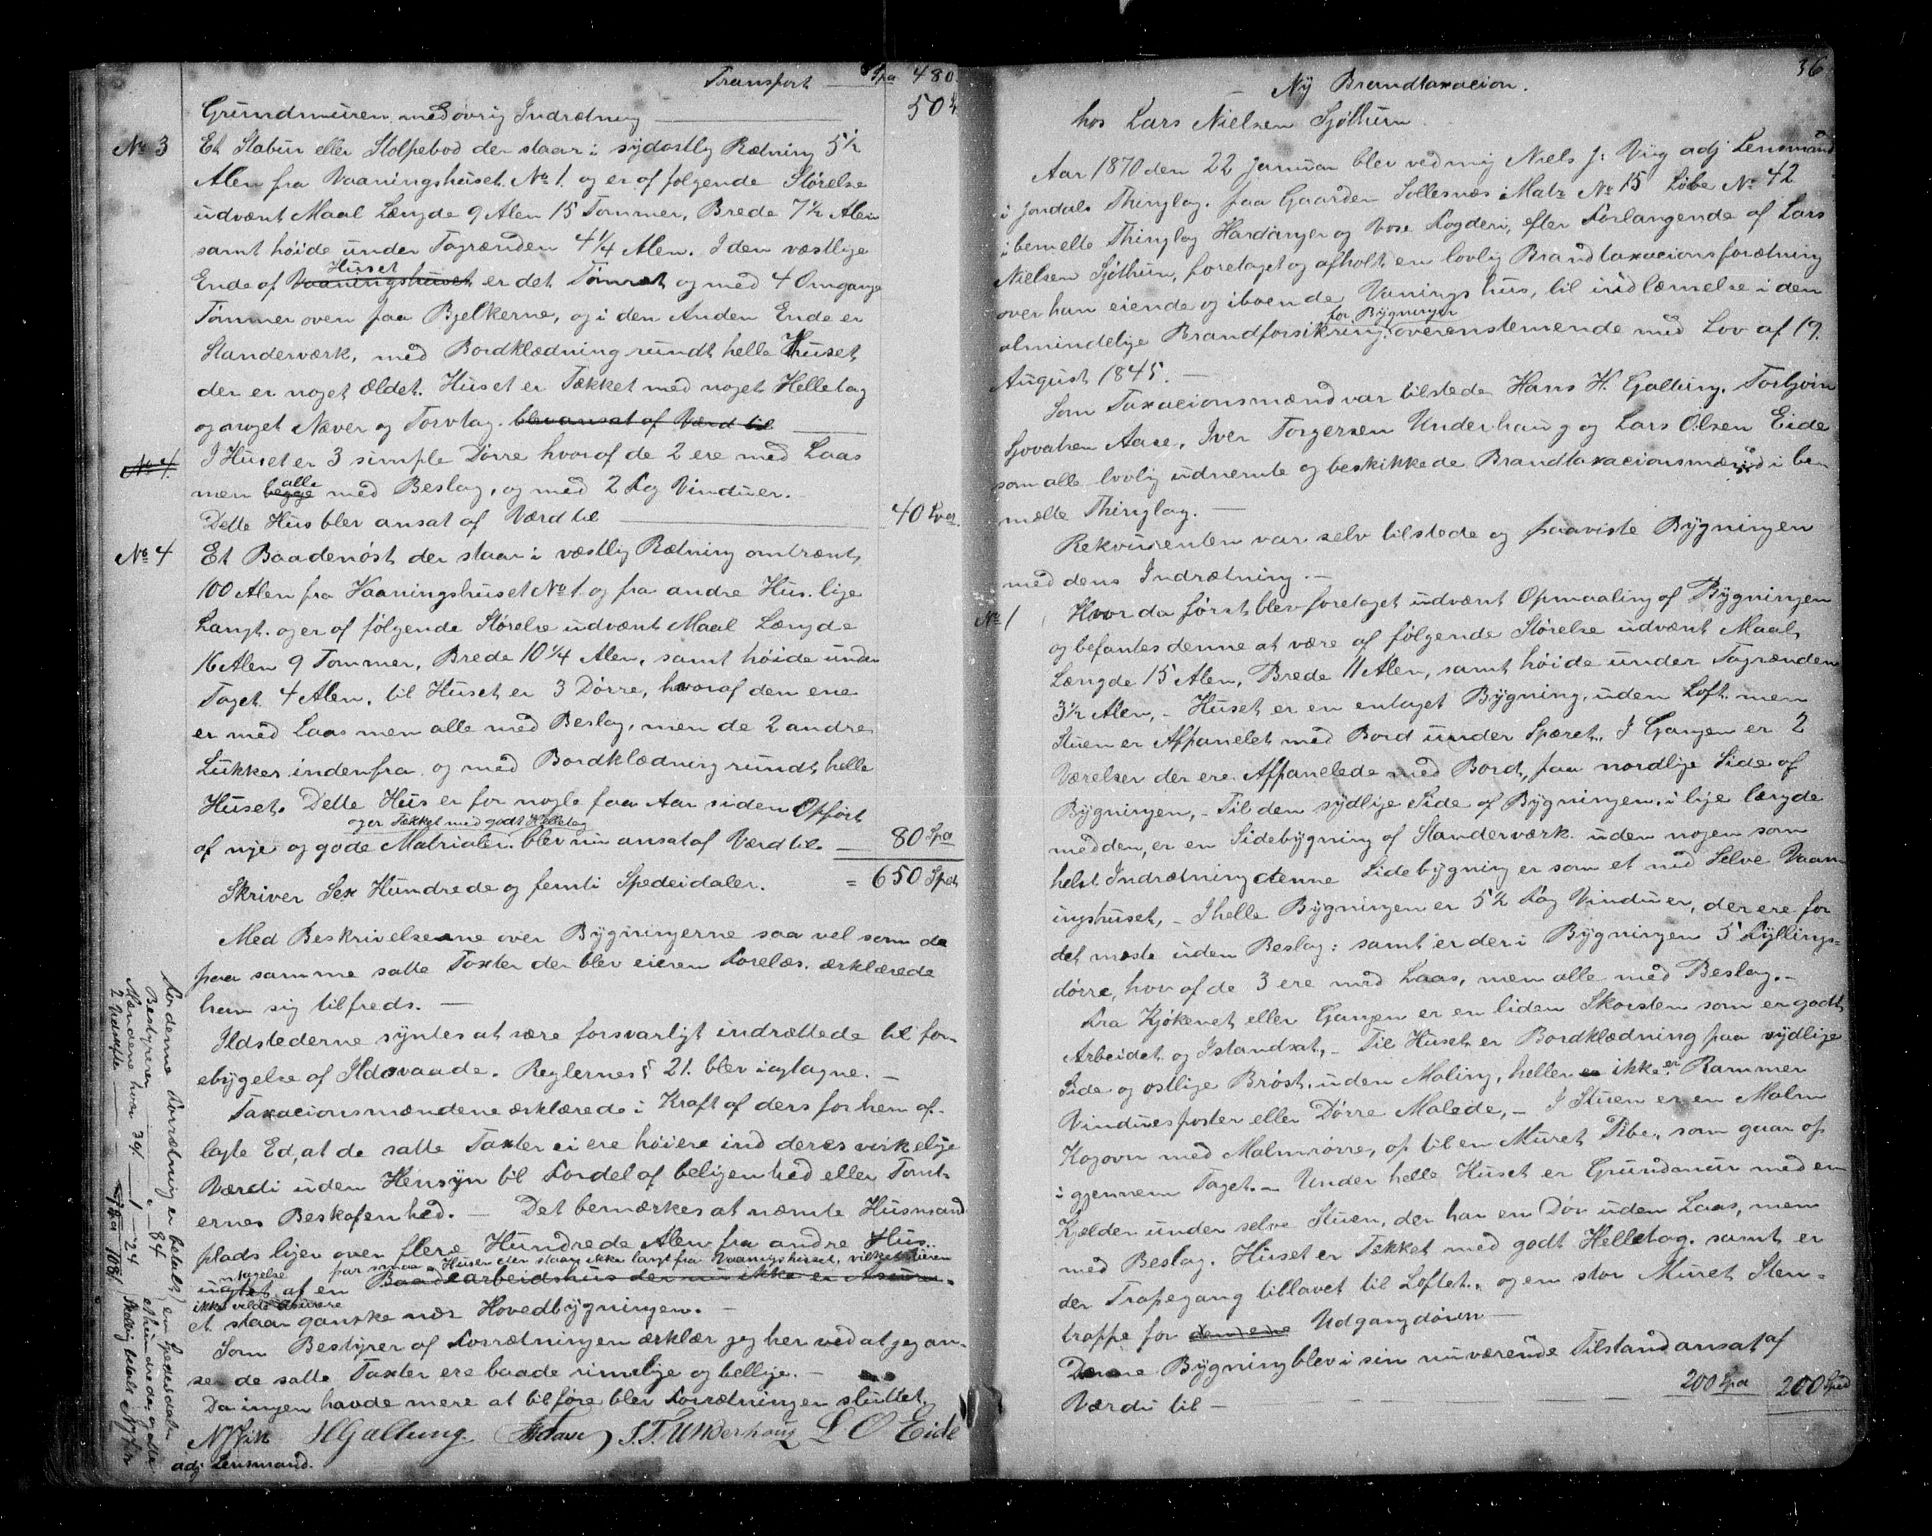 Transport — Spa 480.
Grundmuren med øvrig Indrætning — 50 "
No 3 Et Stabur eller Stolpebod der staar i sydostlig Rætning 5½
Alen fra Vaaningshuset No 1. og er af følgende Størelse
udvent Maal Længde 9 Alen 15 Tommer, Brede 7½ Alen
samt høide under Tagrænden 4¼ Alen. I den væstlige
Ende af Vaaningshuset Huset er det Tømret og med 4 Omgange
Tømmer oven paa Bjelkerne, og i den Anden Ende er
Standerværk, med Bordklædning rundt helle Huset
der er noget ældet. Huset er Tækket med noget Helletag
og noget Næver og Torvtag. blev ansat af Værd til
No 4. I Huset er 3 simple Dørre hvoraf de 2 ere med Laas
men begge alle med Beslag, og med 2 Fag Vinduer.
Dette Hus blev ansat af Værd til — 40
No 4 Et Baadenøst der staar i væstlig Rætning omtrænt
100 Alen fra Vaaningshuset No 1. og fra andre Hus lige
Langt. og er af følgende Størelse udvent Maal Længde
16 Alen 9 Tommer, Brede 10¼ Alen, samt høide under
Taget 4 Alen. til Huset er 3 Dørre, hvoraf den ene
er med Laas men alle med Beslag, men de 2 andre
Lukkes indenfra og med Bordklædning rundt helle
Huset. Dette Hus er for nogle faa Aar siden Opført
og er Tækket med godt Helletag
af nye og gode Matrialer. blev nu ansat af Værd til — 80 Spa
Skriver Sex Hundrede og femti Spedeidaler. = 650 Spd
Med Beskrivelserne over Bygningerne saa vel som de
paa samme satte Taxter der blev eieren Forelæs. ærklærede
han sig tilfreds. —
Ildstederne syntes at være forsvarligt indrættede til for-
ebygelse af Ildsvaade. Reglernes § 21. blev iagtagne. —
Taxacionsmændene ærklærede i Kraft af ders for hen af-
lagte Ed, at de satte Taxter ei ere høiere ind deres virkelige
Værdi uden Hensyn til Fordel af beligenhed eller Tomt-
ernes Beskafenhed. — Det bemærkes at næmte Husmand
plads liger over flere Hundrede Alen fra andre Hus
par smaa Huse der staar ikke langt fra Vaaningshuset, vilket eieren
ikke vilde Asurere
af en Baadearbeidshus der nu ikke er Asure-
et staar ganske nær Hovedbygningen. —
Som Bestyrer af Forrætningen ærklær jeg her ved at jeg an-
ser de satte Taxter ere baade rimelige og bellige. —
Da ingen havde mere at tilføre blev Forrætningen sluttet.
NJVik HGaltung Aase I.T. Underhoug L O Eide
adj Lensmand.
For denne Forrætning er betalt
Bestyreren — 84
Mændene hver 39/ — 1 — 24
2 Udskrifter
Spd 108/
36
Ny Brandtaxacion.
hos Lars Nielsen Sjøthun
Aar 1870 den 22 Januar blev ved mig Niels J: Viig adj Lensmand
i Jondals Thinglag. paa Gaarden Sollesnæs Matr No 15 Løbe No 42
i bemelte Thinglag Hardanger og Vose Fogderi, efter Forlangende af Lars
Nielsen Sjøthun, foretaget og afholdt en lovlig Brandtaxacionsforætning
over han eiende og iboende Vanings hus, til indlæmelse i den
almindelige Brandforsikring for Bygninger overenstemende med Lov af 19.
August 1845. —
Som Taxacionsmænd var tilstede Hans H. Galtung. Torbjørn
Sjovatsen Aase, Iver Torgersen Underhaug og Lars Olsen Eide
som alle lovlig udnemte og beskikkede Brandtaxacionsmænd i be-
mælte Thinglag. —
Rekvirenten var selv tilstede og paaviste Bygningen
med dens Indrætning. —
No 1 Hvor da først blev foretaget udvent Opmaaling af Bygningen
og befantes denne at være af følgende Størelse udvent Maal,
Længde 15 Alen, Brede 11 Alen, samt høide under Tagrænden
3½ Alen, - Huset er en entaget Bygning, uden Loft men
Stuen er Afpanelet med Bord under Spæret. I Gangen er 2
Værelser der ere Afpanelede med Bord, paa nordlige Side af
Bygningen, - Til den sydlige Side af Bygningen, i lige længde
med den, er en Sidebygning af Standerværk uden nogen som
helst Indrætning denne Sidebygning er som et med Selve Vaan-
ingshuset, - I helle Bygningen er 5½ Fag Vinduer, der ere for
det mæste uden Beslag: samt er der i Bygningen 5 Fyllings-
dørre, hvor af de 3 ere med Laas, men alle med Beslag. -
Fra Kjøkenet eller Gangen er en liden Skorsten som er godt
Arbeidet og Istandsat, - Til Huset er Bordklædning paa sydlige
Side og ostlige Brøst, uden Maling, heller ikke er Rammer
Vinduesposter eller Dørre Malede, - I Stuen er en Malm
Kogovn med Malmrørre, op til en Muret Pibe, som gaar op
i gjennem Taget. - Under helle Huset er Grundmur med en
Kjelder under selve Stuen, der har en Dør uden Laas, men
med Beslag. Huset er Tækket med godt Helletag. samt er
der Trapegang tillavet til Loftet, og en stor Muret Sten-
trappe for Udgangdøren —
Denne Bygning blev i sin nuværende Tilstand ansat af
Værdi til — 200 Spd 200 Spd